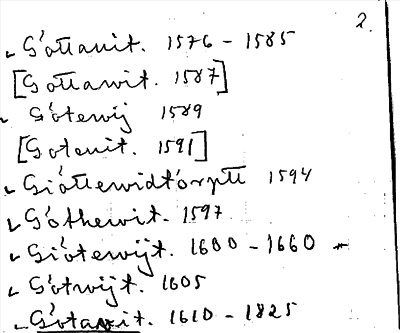 2.
Gʹottanit. 1576 – 1585
[Gottawit. 1587]
Gʹötewij 1589
[Gotenit. 1591]
Giʹöttewidtʹorptt 1594
Gʹöthewit. 1597
Giʹötewijt. 1600 – 1660
Gʹötwijt. 1605
Gʹötawit. 1610 – 1825